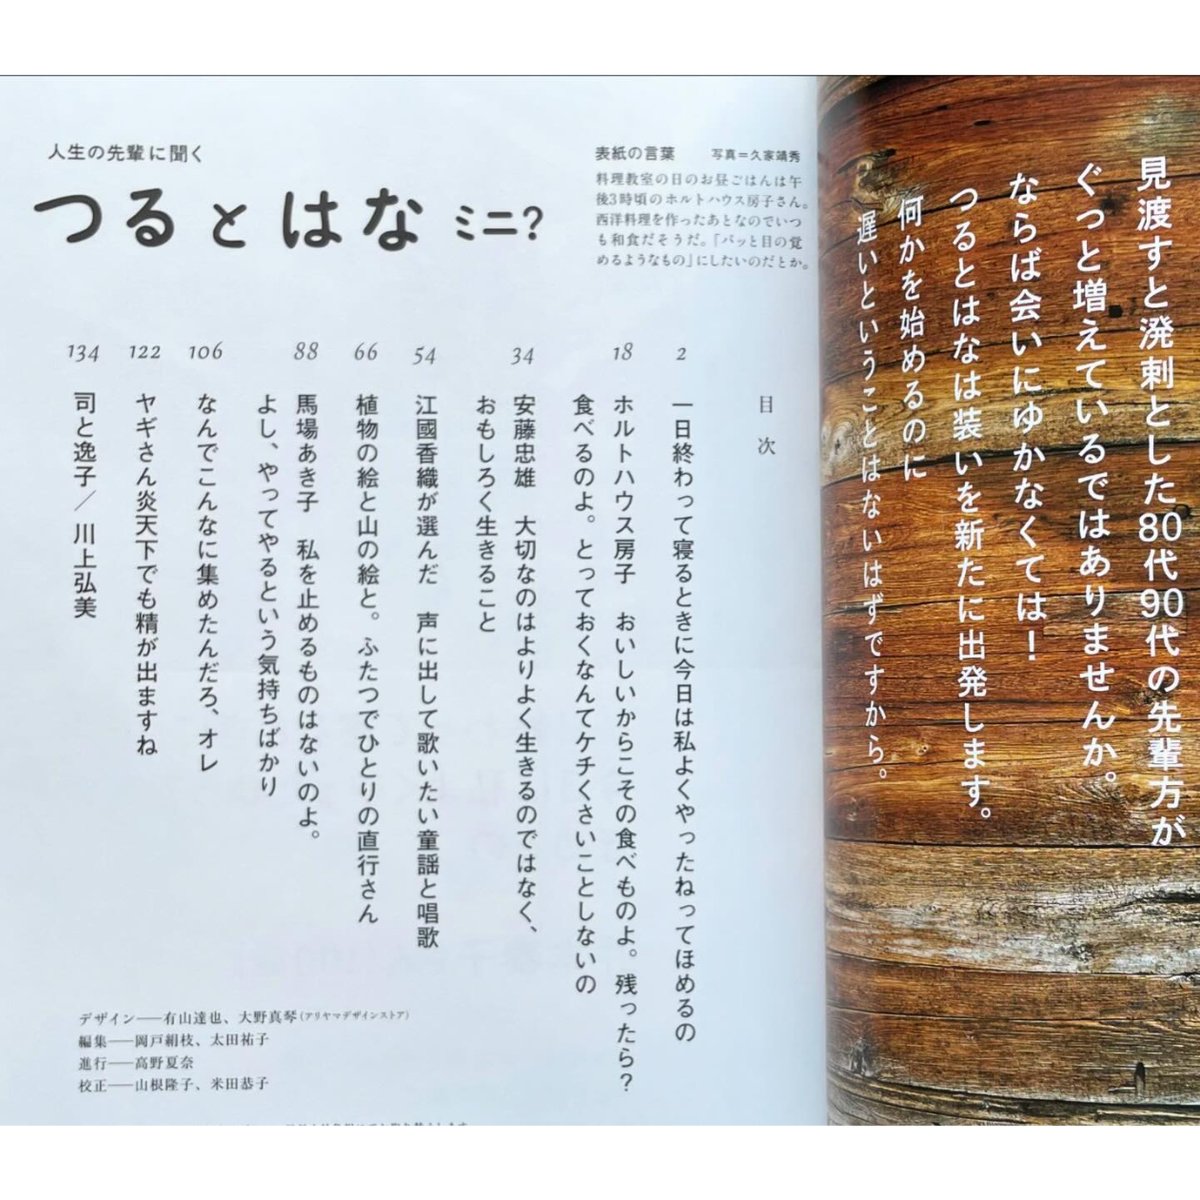 見渡すと溌剌とした80代90代の先輩方が
ぐっと増えているではありませんか。
ならば会いにゆかなくては！
つるとはなは装いを新たに出発します。
何かを始めるのに
遅いということはないはずですから。
人生の先輩に聞く
つるとはな ミニ?
表紙の言葉　写真＝久家靖秀
料理教室の日のお昼ごはんは午
後3時頃のホルトハウス房子さん。
西洋料理を作ったあとなのでいつ
も和食だそうだ。「パッと目の覚
めるようなもの」にしたいのだとか。
目次
2　一日終わって寝るときに今日は私よくやったねってほめるの
18　ホルトハウス房子　おいしいからこその食べものよ。残ったら？
食べるのよ。とっておくなんてケチくさいことしないの
34　安藤忠雄　大切なのはよりよく生きるのではなく、
おもしろく生きること
54　江國香織が選んだ　声に出して歌いたい童謡と唱歌
66　植物の絵と山の絵と。ふたつでひとりの直行さん
88　馬場あき子　私を止めるものはないのよ。
よし、やってやるという気持ちばかり
106　なんでこんなに集めたんだろ、オレ
122　ヤギさん炎天下でも精が出ますね
134　司と逸子／川上弘美
デザイン──有山達也、大野真琴（アリヤマデザインストア）
編集──岡戸絹枝、太田祐子
進行──高野夏奈
校正──山根隆子、米田恭子